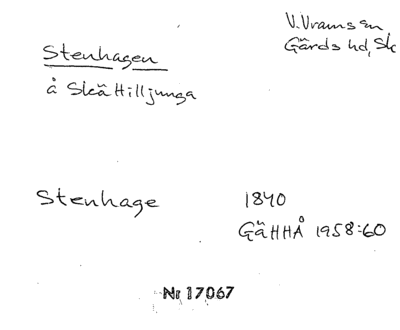 V. Vrams sn
Gärds hd, Sk
Stenhagen
å Skättilljunga
Stenhage
1840
GäHHÅ 1958:60
Nr 17067